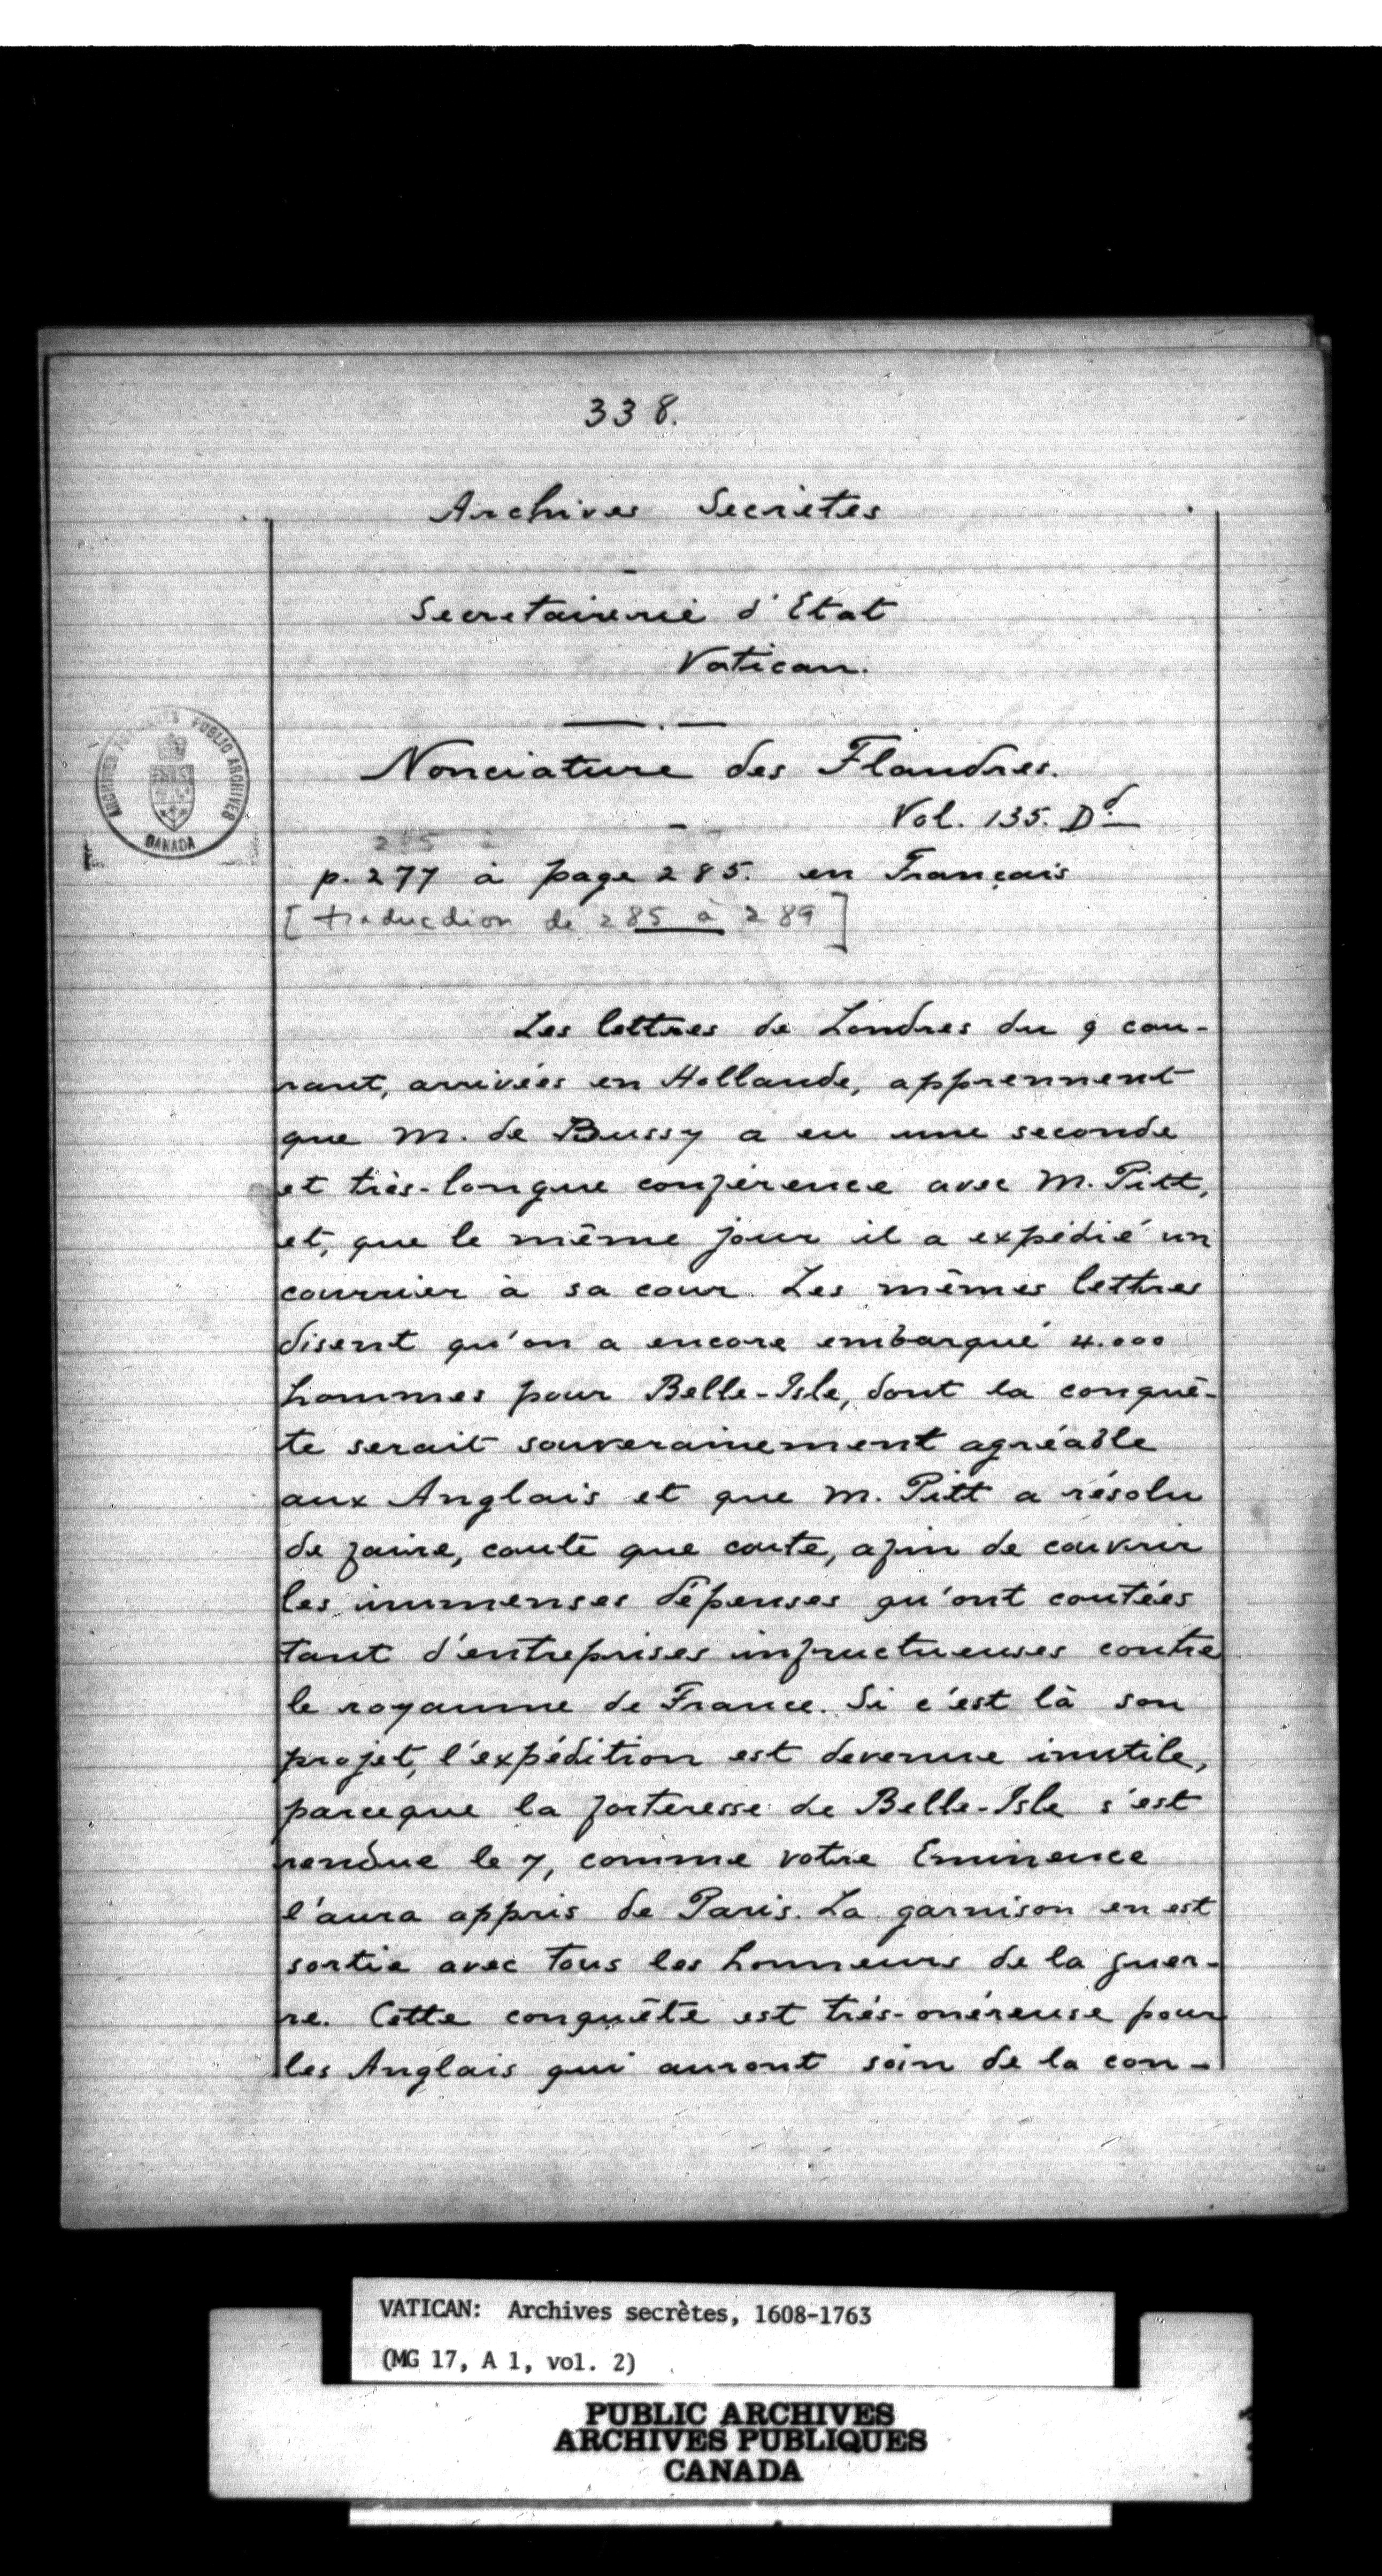 338.
Archives Secrètes
Secretairerie d'Etat
Vatican.
Nonciature des Flandres.
Vol. 135. Dd.
p. 277 à page 285. en Français
[traduction de 285 à 289]
Les lettres de Londres du 9 cou-
rant, arrivées en Hollande, apprennent
que M. de Bussy a eu une seconde
et très-longue conférence avec M. Pitt,
et, que le même jour il a expédié un
courrier à sa cour. Les mêmes lettres
disent qu'on a encore embarqué 4.000
hommes pour Belle-Isle, dont la conquê-
te serait souverainement agréable
aux Anglais et que M. Pitt a résolu
de faire, coute que coute, afin de couvrir
les immenses dépenses qu'ont coutées
tant d'entreprises infructueuses contre
le royaume de France. Si c'est là son
projet, l'expédition est devenue inutile,
parceque la forteresse de Belle-Isle s'est
rendue le 7, comme votre Eminence
l'aura appris de Paris. La garnison en est
sortie avec tous les honneurs de la guer-
re. Cette conquête est très-onéreuse pour
les Anglais qui auront soin de la con-
PUBLIC ARCHIVES
CANADA
VATICAN: Archives secrètes, 1608-1763
(MG 17, A 1, vol. 2)
PUBLIC ARCHIVES
ARCHIVES PUBLIQUES
CANADA